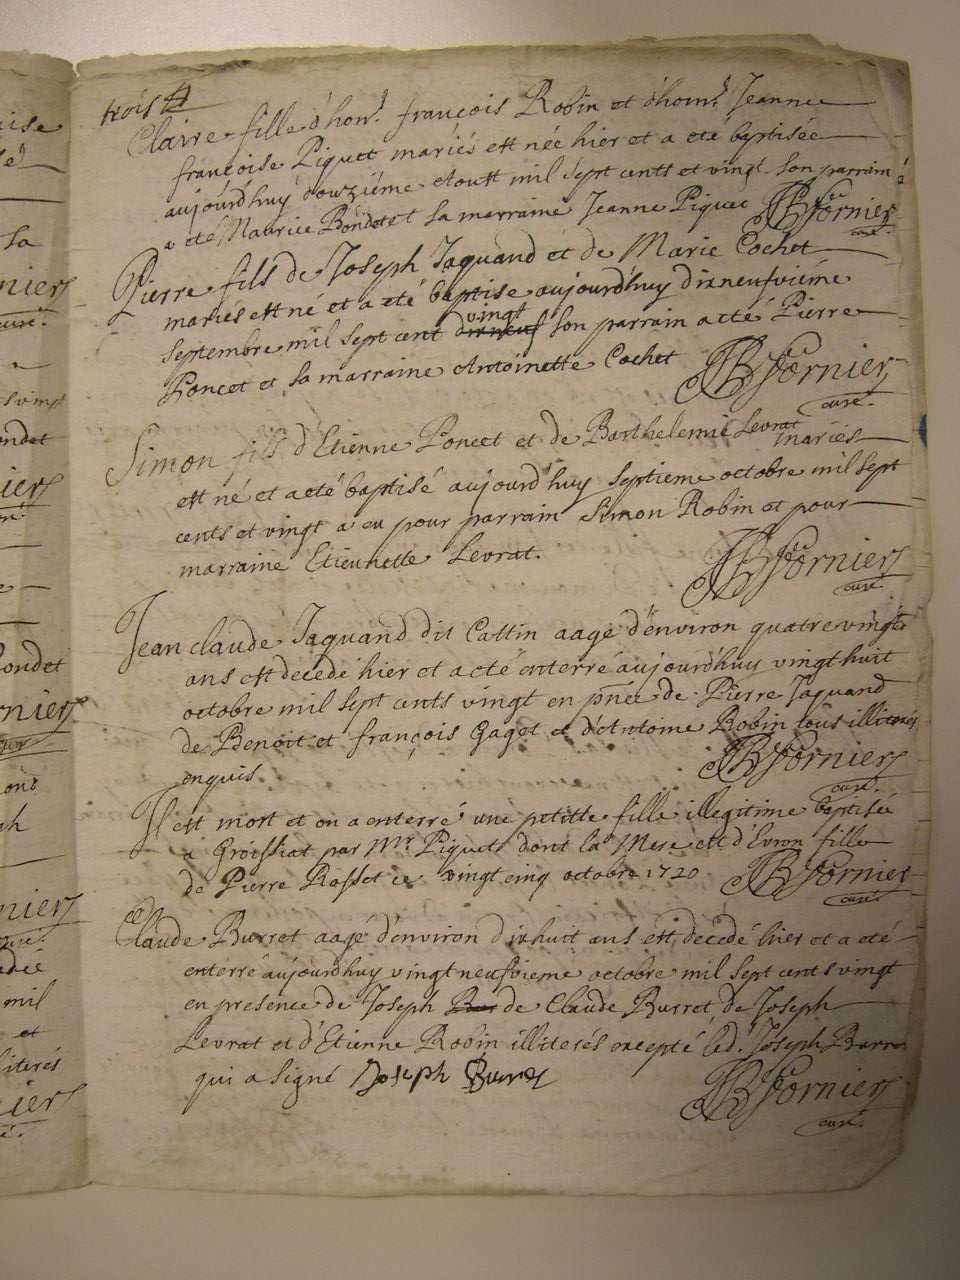 trois
Claire fille d'hon.^r françois Robin et d'hon.^r Jeanne
françoise Piquet mariés est née hier et a eté baptisée
aujourd'huy douzieme Aoust mil sept cents et vingt son parrain
a eté Maurice Bondet et sa marraine Jeanne Piquet JB Fornier
curé.
Pierre fils de Joseph Jaquand et de Marie Cochet
mariés est né et a eté baptisé aujourd'huy dixneufvième
septembre mil sept cent dixneuf vingt son parrain a eté Pierre
Poncet et sa marraine Antoinette Cochet JB Fornier
curé.
Simon fils d'Etienne Poncet et de Barthelemie Levrat mariés
est né et a eté baptisé aujourd'huy septieme octobre mil sept
cents et vingt a eu pour parrain Simon Robin et pour
marraine Etiennette Levrat. JB Fornier
curé.
Jean claude Jaquand dit Cattin aagé d'environ quatre vingts
ans est décedé hier et a eté enterré aujourd'huy vingt huit
octobre mil sept cents vingt en pñce de Pierre Jaquand
de Benoit et françois Gaget et d'Antoine Robin tous illiterés
enquis JB Fornier
curé.
Il est mort et on a enterré une petitte fille illegitime baptisée
a Groissiat par M^r Piquet dont la Mere est d'Evron fille
de Pierre Rasset ce vingt cinq octobre 1720 JB Fornier
curé.
Claude Burret aagé d'environ dixhuit ans est décedé hier et a eté
enterré aujourd'huy vingt neufvieme octobre mil sept cents vingt
en presence de Joseph Bur de Claude Burret, de Joseph
Levrat et d'Etienne Robin illiterés excepté led. Joseph Burret
qui a signé Joseph Burret JB Fornier
curé.